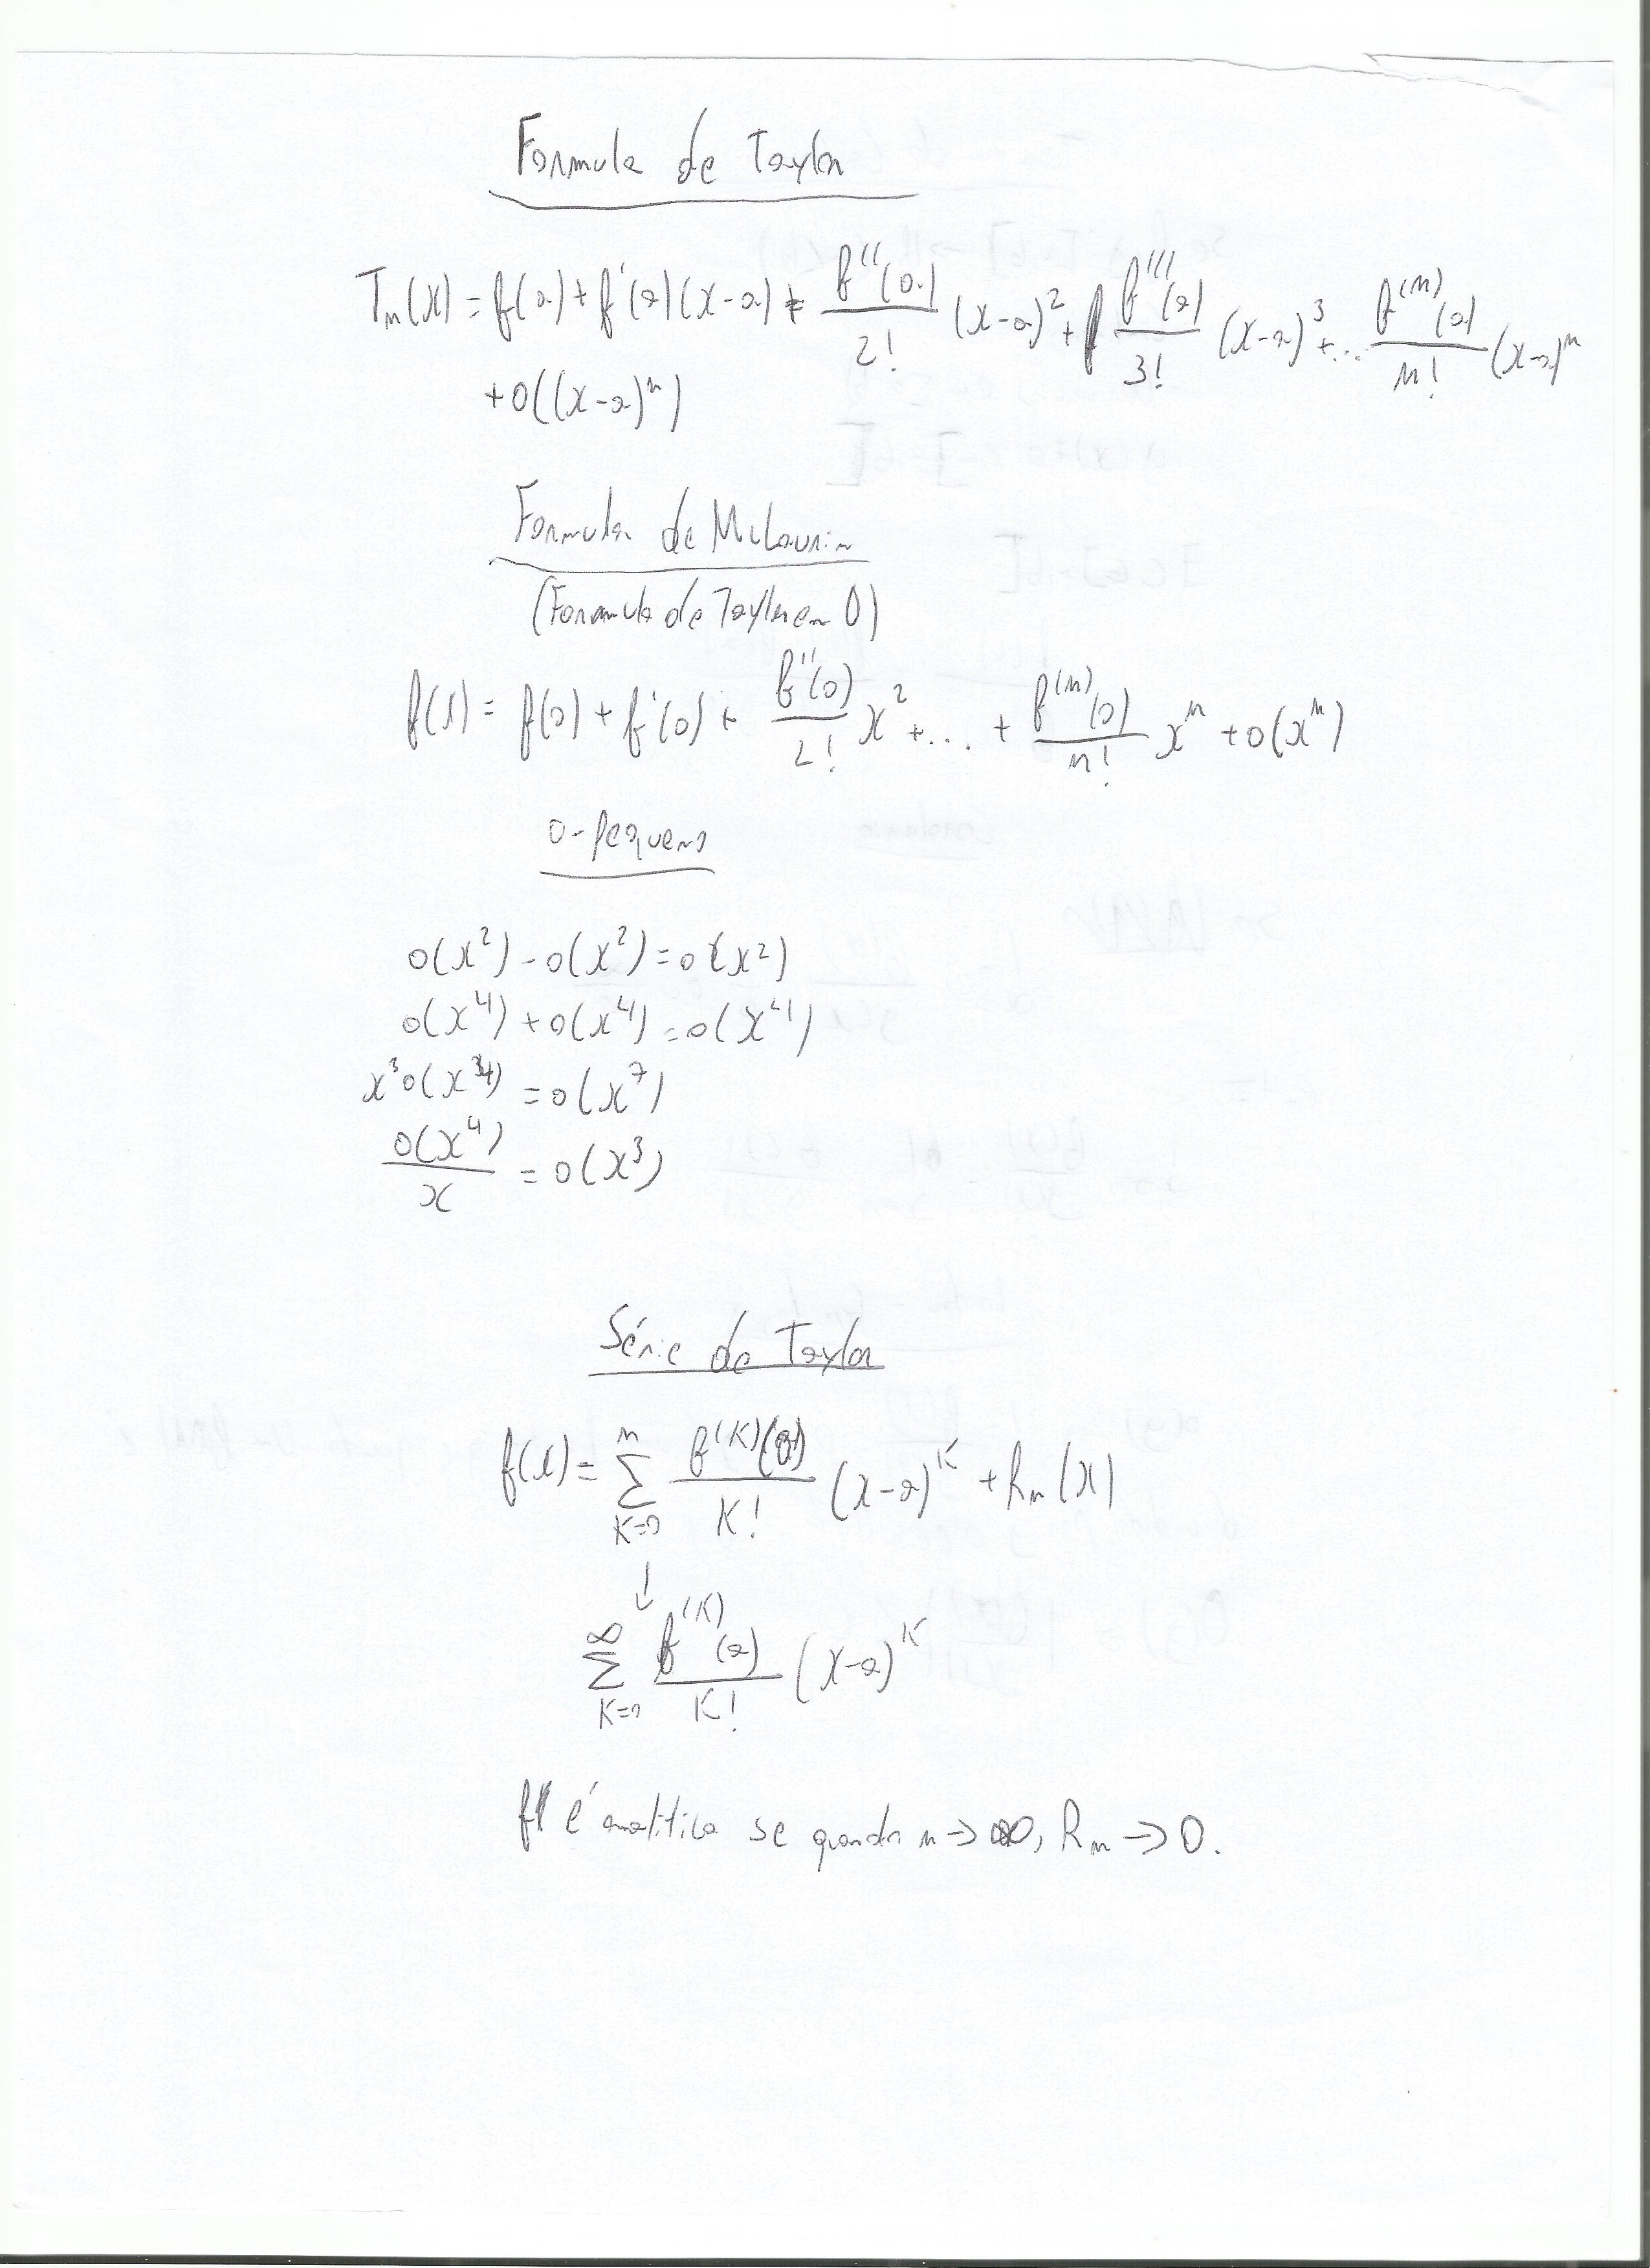 Formula de Taylor
Tn(x) = f(a) + f'(a)(x-a) + f''(a)/2! (x-a)^2 + f'''(a)/3! (x-a)^3 + ... f^(n)(a)/n! (x-a)^n
+ o((x-a)^n)
Formula de McLaurin
(Formula de Taylor em 0)
f(x) = f(0) + f'(0) + f''(0)/2! x^2 + ... + f^(n)(0)/n! x^n + o(x^n)
o-pequeno
o(x^2) - o(x^2) = o(x^2)
o(x^4) + o(x^4) = o(x^4)
x^3 o(x^4) = o(x^7)
o(x^4)/x = o(x^3)
Série de Taylor
f(x) = Σ_{K=0}^{n} f^(K)(a)/K! (x-a)^K + Rn(x)
↓
Σ_{K=0}^{∞} f^(K)(a)/K! (x-a)^K
f é analitica se quando n → ∞, Rn → 0.